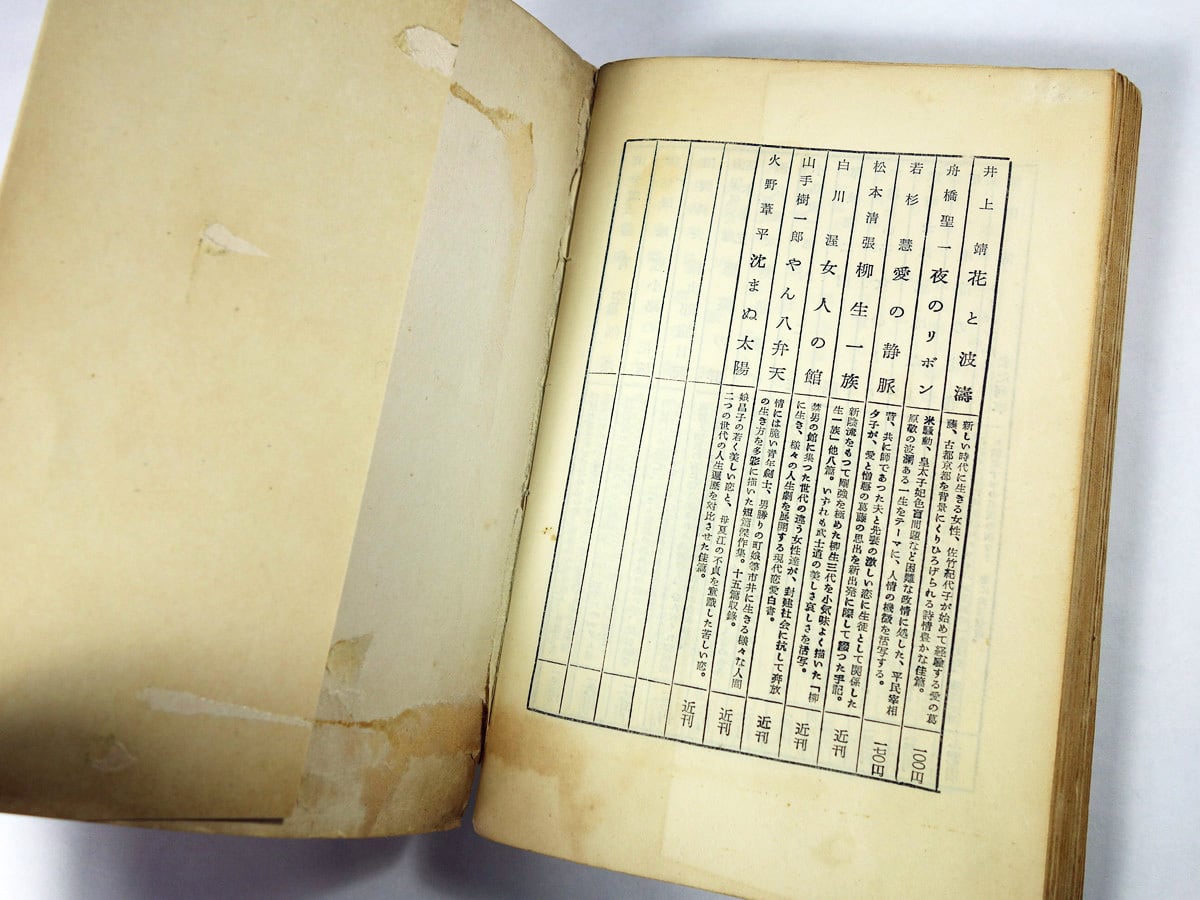 井上靖 花と波濤 新しい時代に生きる女性、佐竹紀代子が始めて経験する愛の葛
藤、古都京都を背景にくりひろげられる詩情豊かな佳篇。 一〇〇円
舟橋聖一 夜のリボン 米騒動、皇太子妃色盲問題など困難な政情に処した、平民宰相
原敬の波瀾ある一生をテーマに、人情の機微を活写する。 一七〇円
若杉慧 愛の静脈 昔、共に師であつた夫と先妻の激しい恋に生徒として関係した
夕子が、愛と憎悪の葛藤の思出を新出発に際して綴つた手記。 近刊
松本清張 柳生一族 新陰流をもつて剛強を極めた柳生三代を小気味よく描いた「柳
生一族」他八篇。いずれも武士道の美しさ哀しさを活写。 近刊
白川渥 女人の館 禁男の館に集つた世代の違う女性達が、封建社会に抗して奔放
に生き、様々の人生劇を展開する現代恋愛白書。 近刊
山手樹一郎 やん八弁天 情には脆い青年剣士、男勝りの町娘等市井に生きる様々な人間
の生き方を多彩に描いた短篇傑作集。十五篇収録。 近刊
火野葦平 沈まぬ太陽 娘昌子の若く美しい恋と、母夏江の不貞を意識した苦しい恋。
二つの世代の人生遍歴を対比させた佳篇。 近刊